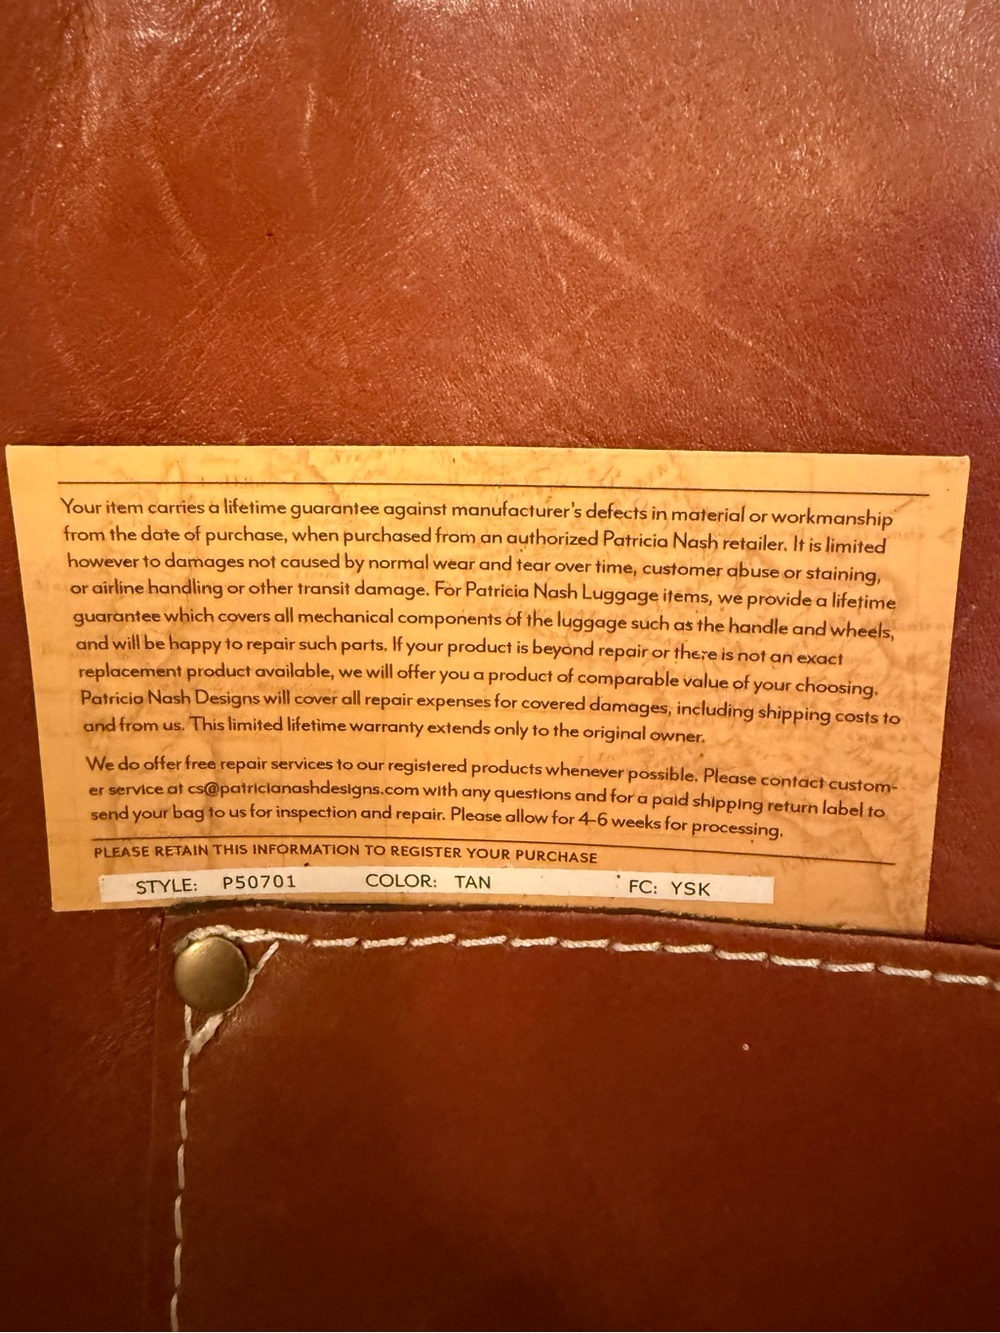 Your item carries a lifetime guarantee against manufacturer's defects in material or workmanship
from the date of purchase, when purchased from an authorized Patricia Nash retailer. It is limited
however to damages not caused by normal wear and tear over time, customer abuse or staining,
or airline handling or other transit damage. For Patricia Nash Luggage items, we provide a lifetime
guarantee which covers all mechanical components of the luggage such as the handle and wheels,
and will be happy to repair such parts. If your product is beyond repair or there is not an exact
replacement product available, we will offer you a product of comparable value of your choosing.
Patricia Nash Designs will cover all repair expenses for covered damages, including shipping costs to
and from us. This limited lifetime warranty extends only to the original owner.
We do offer free repair services to our registered products whenever possible. Please contact custom-
er service at cs@patricianashdesigns.com with any questions and for a paid shipping return label to
send your bag to us for inspection and repair. Please allow for 4-6 weeks for processing.
PLEASE RETAIN THIS INFORMATION TO REGISTER YOUR PURCHASE
STYLE: P50701 COLOR: TAN FC: YSK